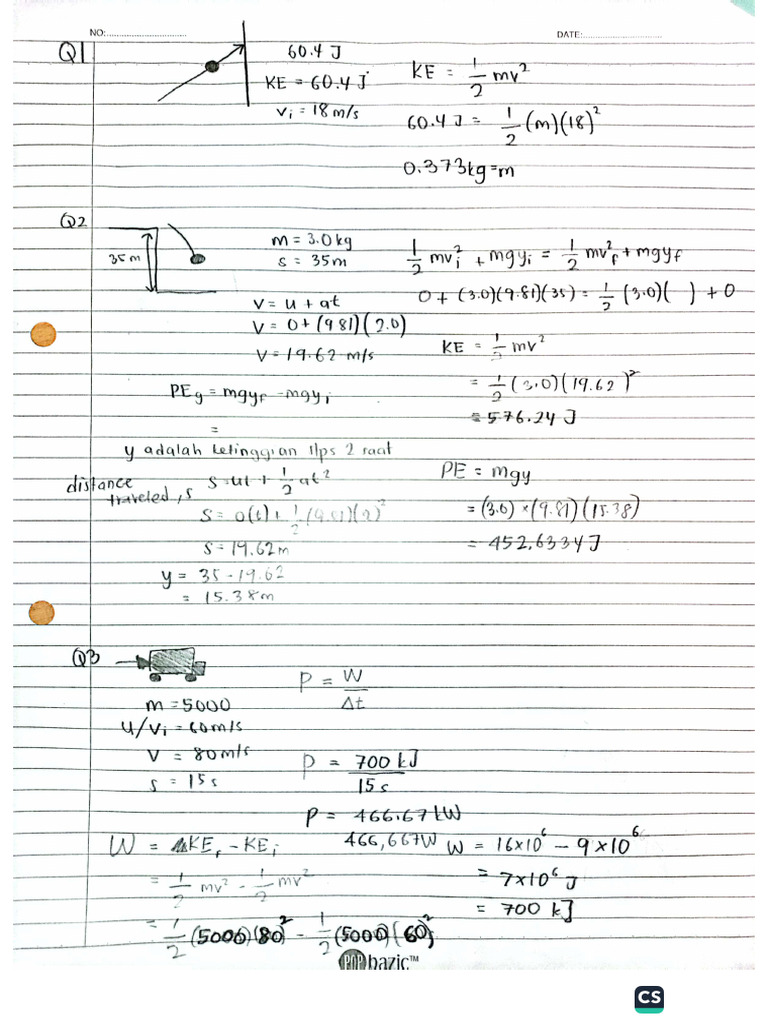 NO:
DATE:
Q1
60.4 J
KE = 60.4 J
vi = 18 m/s
KE = 1/2 mv²
60.4 J = 1/2 (m)(18)²
0.373kg = m
Q2
35 m
m = 3.0 kg
s = 35m
1/2 mvi² + mgyi = 1/2 mvf² + mgyf
0 + (3.0)(9.81)(35) = 1/2 (3.0)( ) + 0
v = u + at
v = 0 + (9.81)(2.0)
v = 19.62 m/s
KE = 1/2 mv²
= 1/2 (3.0)(19.62)²
= 576.24 J
PEg = mgyf - mgyi
=
y adalah ketinggian slps 2 saat
distance traveled, s
s = ut + 1/2 at²
s = 0(t) + 1/2 (9.81)(2)²
s = 19.62m
y = 35 - 19.62
= 15.38m
PE = mgy
= (3.0) × (9.81)(15.38)
= 452.6334 J
Q3
m = 5000
u/vi = 60m/s
v = 80m/s
s = 15s
P = W/Δt
P = 700 kJ/15 s
P = 466.67 kW
466,667W
W = KEf - KEi
= 1/2 mv² - 1/2 mv²
= 1/2 (5000)(80)² - 1/2 (5000)(60)²
W = 16×10⁶ - 9×10⁶
= 7×10⁶ J
= 700 kJ
POP bazic™
CS